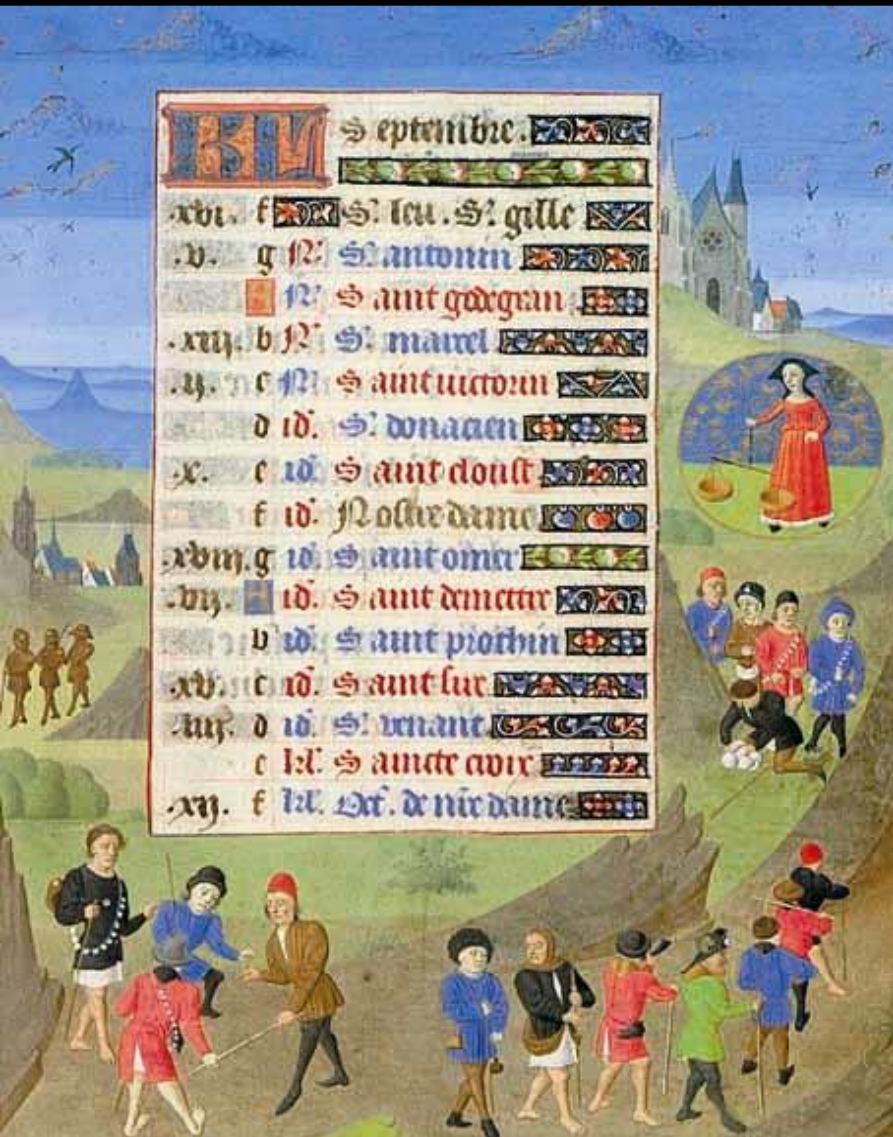 KL Septembre.
.xvi. f S. leu. S. gille
.v. g N. S. antonin
A N. Saint godegran
.xiii. b N. S. marcel
.ii. c N. Saint uictorin
d id. S. donacien
.x. e id. Saint cloust
f id. Nostre dame
.xviii. g id. Saint omer
.vii. A id. Saint demettre
b id. Saint prothin
.xv. c id. Saint sur
.iiii. d id. S. venant
e kl. Saincte croix
.xii. f kl. Oct. de nre dame